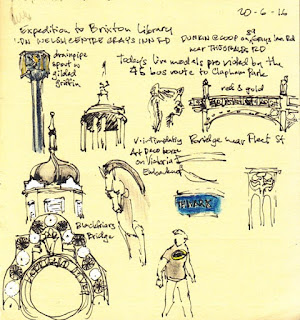 20-6-16
Expedition to Brixton Library
LDN WELSH CENTRE GRAYS INN RD
DUNKIN G COOP on 89 Grays Inn Rd
near THEOBALDS RD
drainpipe
spout w
gilded
Griffin
Today's live models provided by the
45 bus route to Clapham Park
red & gold
V. intimidating
Art Deco horse
on Victoria
Embankment
Bridge near Fleet St
Blackfriars
Bridge